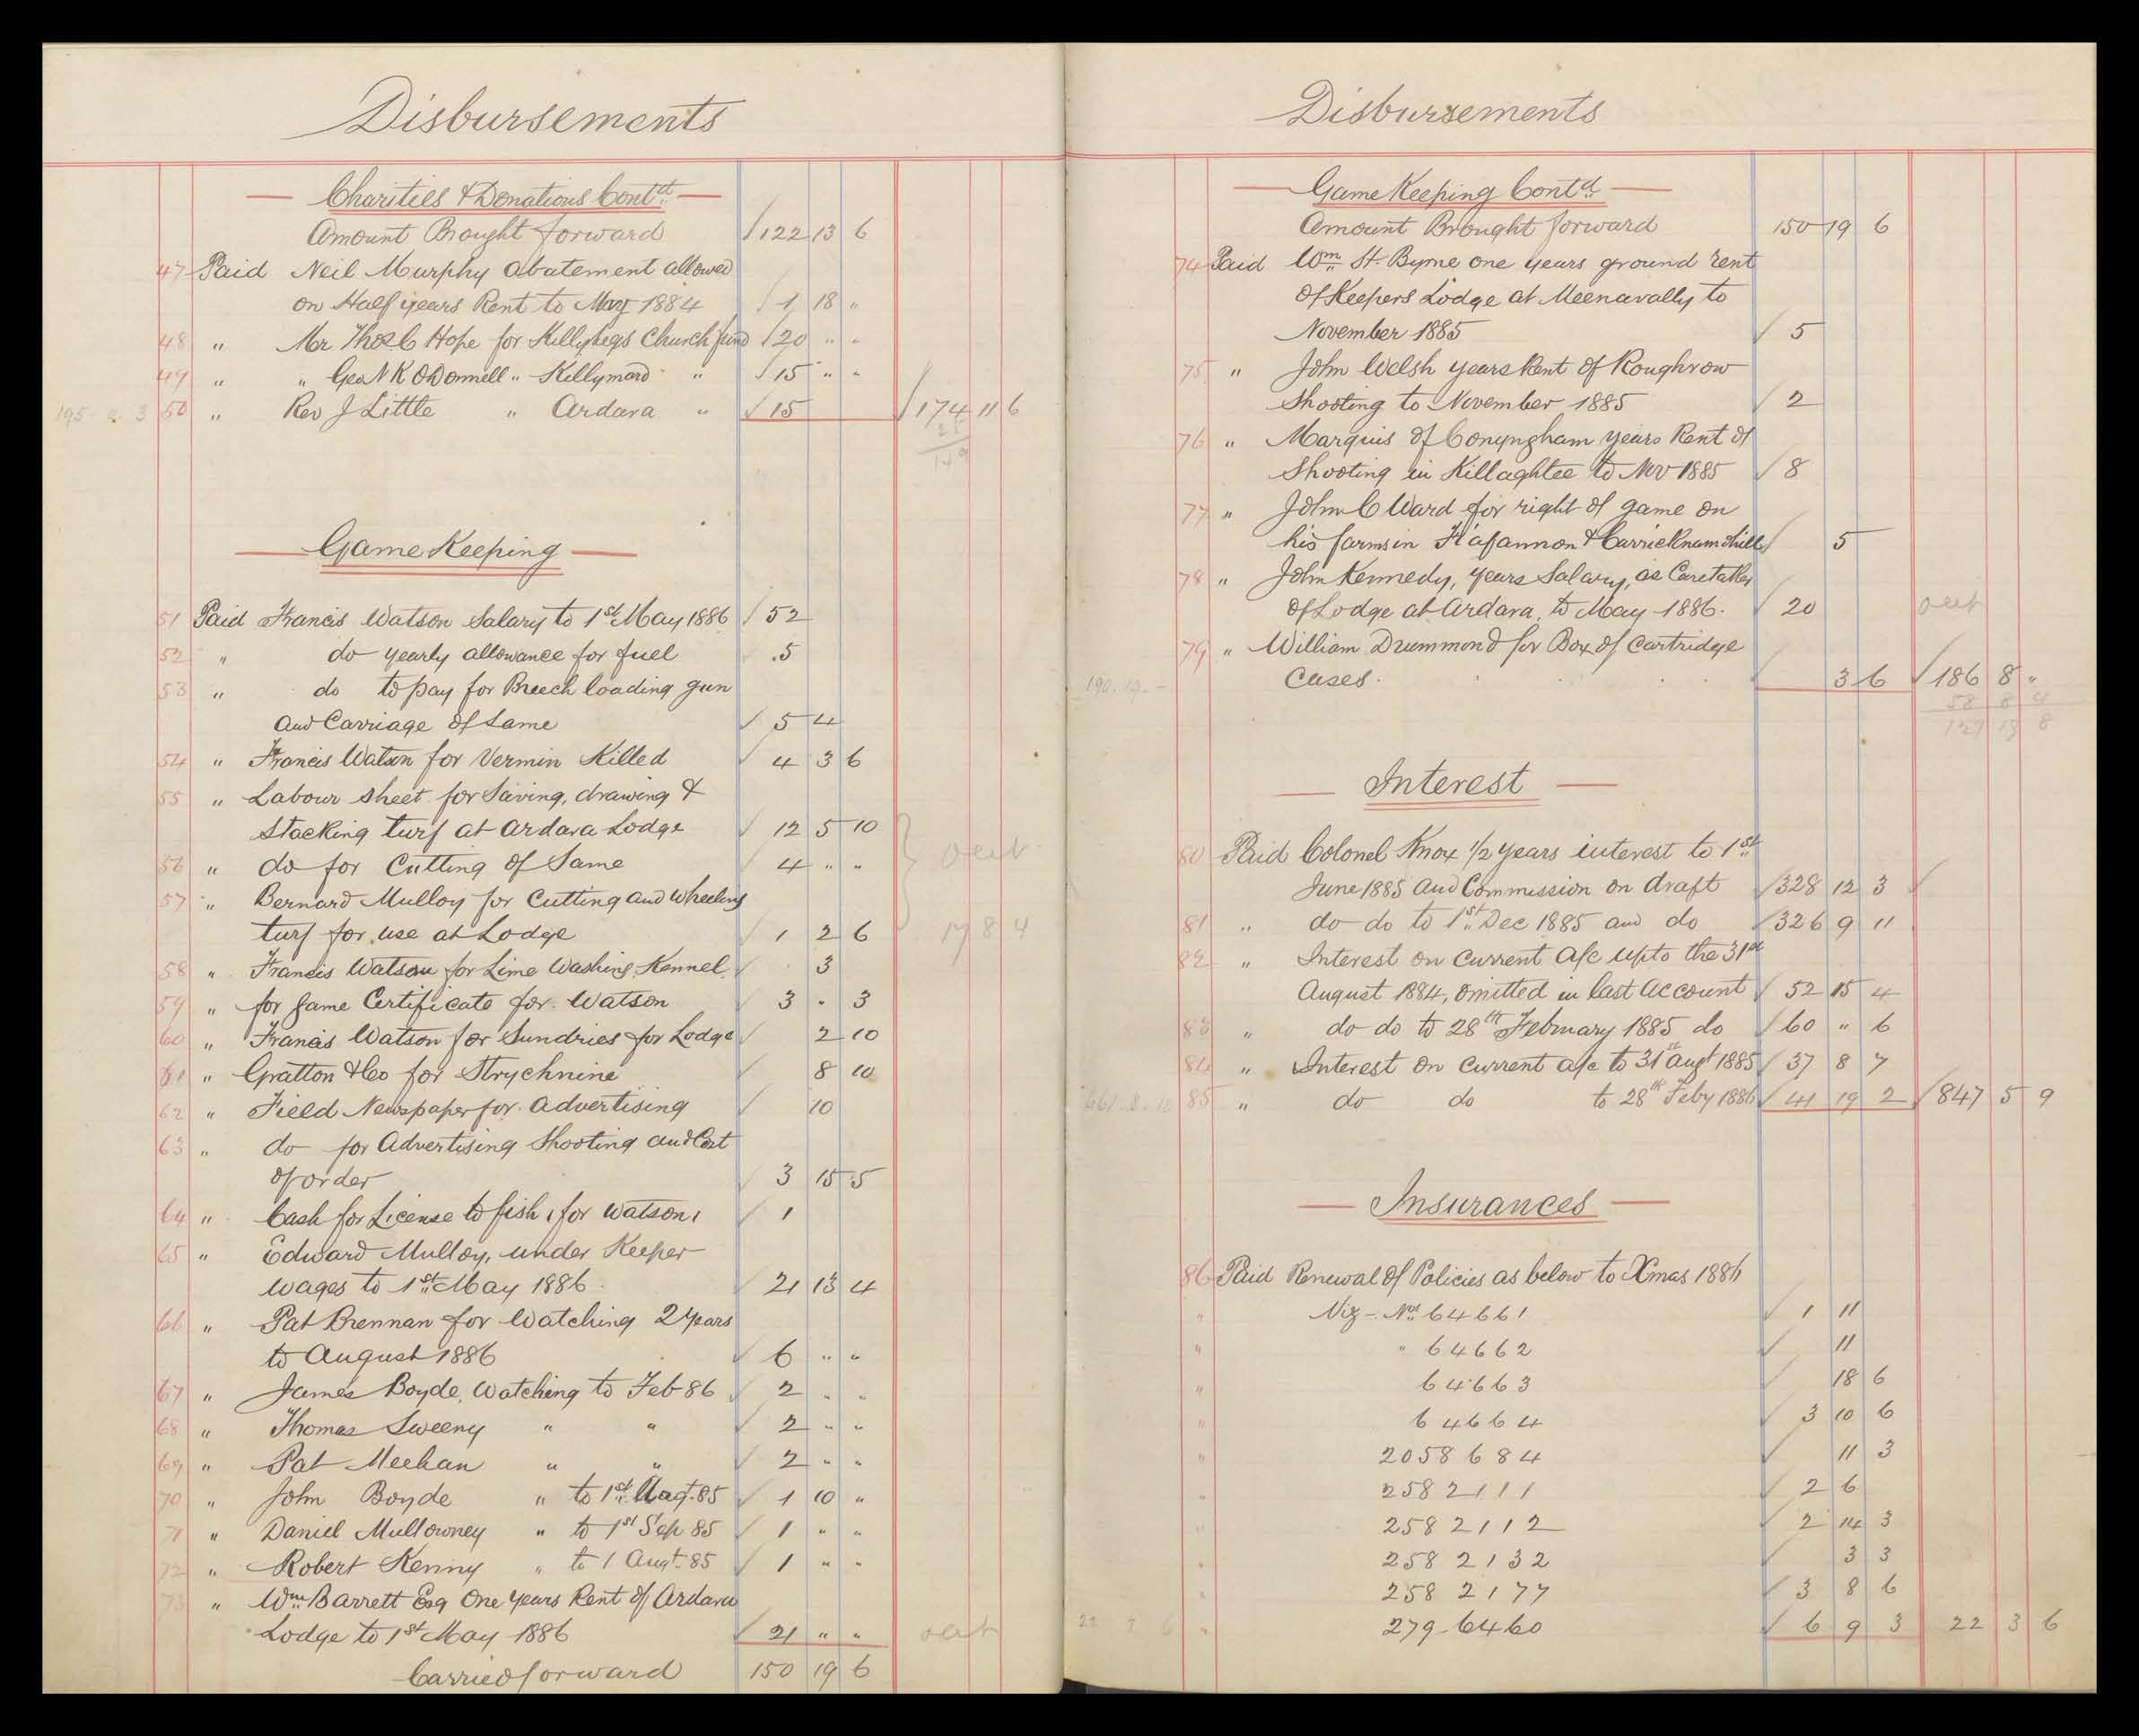 Disbursements
Charities & Donations Contd
Amount Brought forward 122 13 6
47 Paid Neil Murphy abatement allowed
on Half years Rent to May 1884 1 18 "
48 " Mr Thos C Hope for Killybegs Church fund 20 " "
49 " " Geo N K ODonnell " Killymard " 15 " "
195 0 3 50 " Rev J Little " Ardara " 15 174 11 6
25
149
Game Keeping
51 Paid Francis Watson Salary to 1st May 1886 52
52 " do yearly allowance for fuel 5
53 " do to pay for Breech loading gun
and Carriage of Same 5 4
54 " Francis Watson for Vermin Killed 4 3 6
55 " Labour Sheet for Saving, drawing &
Stacking turf at Ardara Lodge 12 5 10
56 " do for Cutting of Same 4 " "
57 " Bernard Mulloy for Cutting and Wheeling
turf for use at Lodge 1 2 6
17 8 4
58 " Francis Watson for Lime Washing Kennel 3
59 " for game Certificate for Watson 3 " 3
60 " Francis Watson for Sundries for Lodge 2 10
61 " Gratton & Co for Strychnine 8 10
62 " Field Newspaper for advertising 10
63 " do for Advertising Shooting and Cost
of order 3 15 5
64 " Cash for License to fish, for Watson, 1
65 " Edward Mulloy, under Keeper
wages to 1st May 1886 21 13 4
66 " Pat Brennan for Watching 2 years
to August 1886 6 " "
67 " James Boyde Watching to Feb 86 2 " "
68 " Thomas Sweeny " " 2 " "
69 " Pat Meehan " " 2 " "
70 " John Boyde " to 1st Augt. 85 1 10 "
71 " Daniel Mullowney " to 1st Sep 85 1 " "
72 " Robert Kenny " to 1 Augt. 85 1 " "
73 " Wm Barrett Esq One years Rent of Ardara
Lodge to 1st May 1886 21 " "
Carried forward 150 19 6
Disbursements
Game Keeping Contd
Amount Brought forward 150 19 6
74 Paid Wm St. Byrne one years ground rent
of Keepers Lodge at Meenavally to
November 1885 5
75 " John Welsh years Rent of Roughrow
Shooting to November 1885 2
76 " Marquis of Conyngham years Rent of
Shooting in Killaghtee to Nov 1885 8
77 " John C Ward for right of game on
his farms in & 5
78 " John Kennedy, years Salary, as Caretaker
of Lodge at Ardara, to May 1886. 20
79 " William Drummond for Box of Cartridge
190. 19. - Cases. 3 6 186 8 "
58 8 4
127 19 8
Interest
80 Paid Colonel Knox 1/2 years interest to 1st
June 1885 and Commission on draft 328 12 3
81 " do do to 1st Dec 1885 and do 326 9 11
82 " Interest on Current a/c up to the 31st
August 1884, omitted in last Account 52 15 4
83 " do do to 28th February 1885 do 60 " 6
84 " Interest on Current a/c to 31st Augt 1885 37 8 7
85 " do do to 28th Feby 1886 41 19 2 847 5 9
Insurances
86 Paid Renewal of Policies as below to Xmas 1886
" Viz - Nos 64661 1 11
" " 64662 11
" 64663 18 6
" 64664 3 10 6
" 2058684 11 3
" 2582111 2 6
" 2582112 2 14 3
" 2582132 3 3
" 2582177 3 8 6
22 3 6 " 2796460 6 9 3 22 3 6